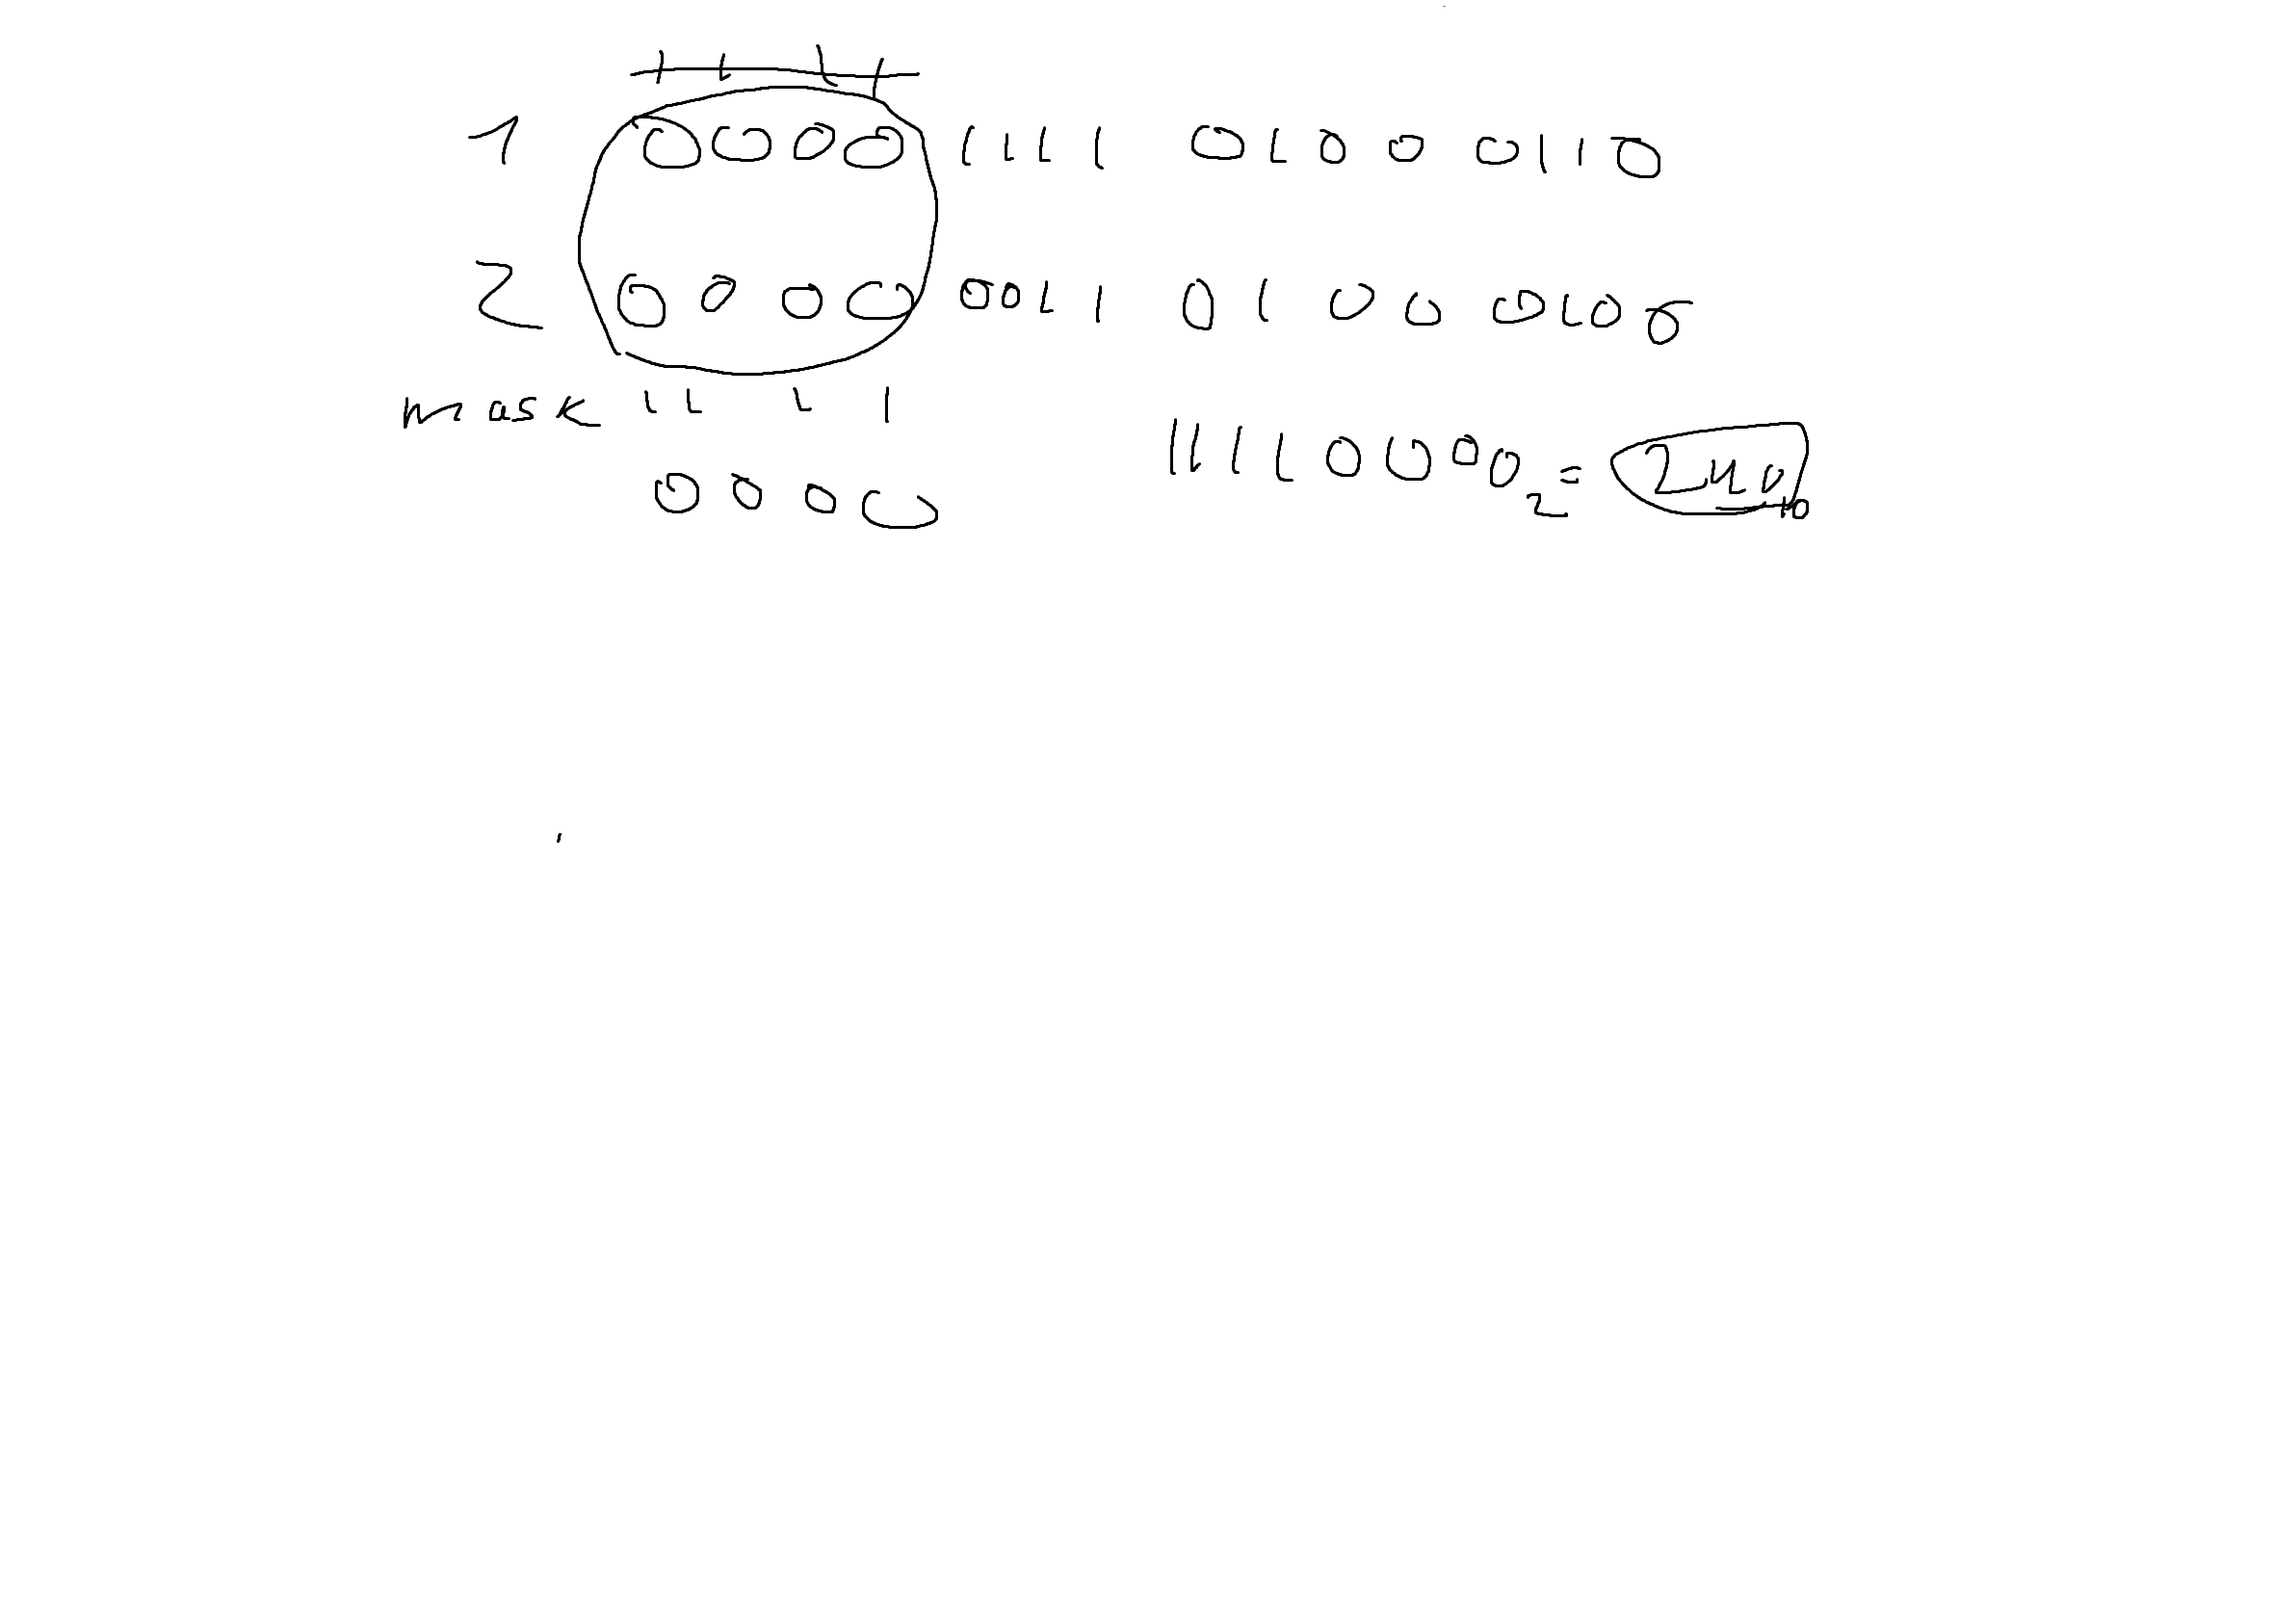 1 0000 1111 0100 0110
2 0000 0011 0100 0100
mask 1111
11110000₂ = 240₁₀
0000